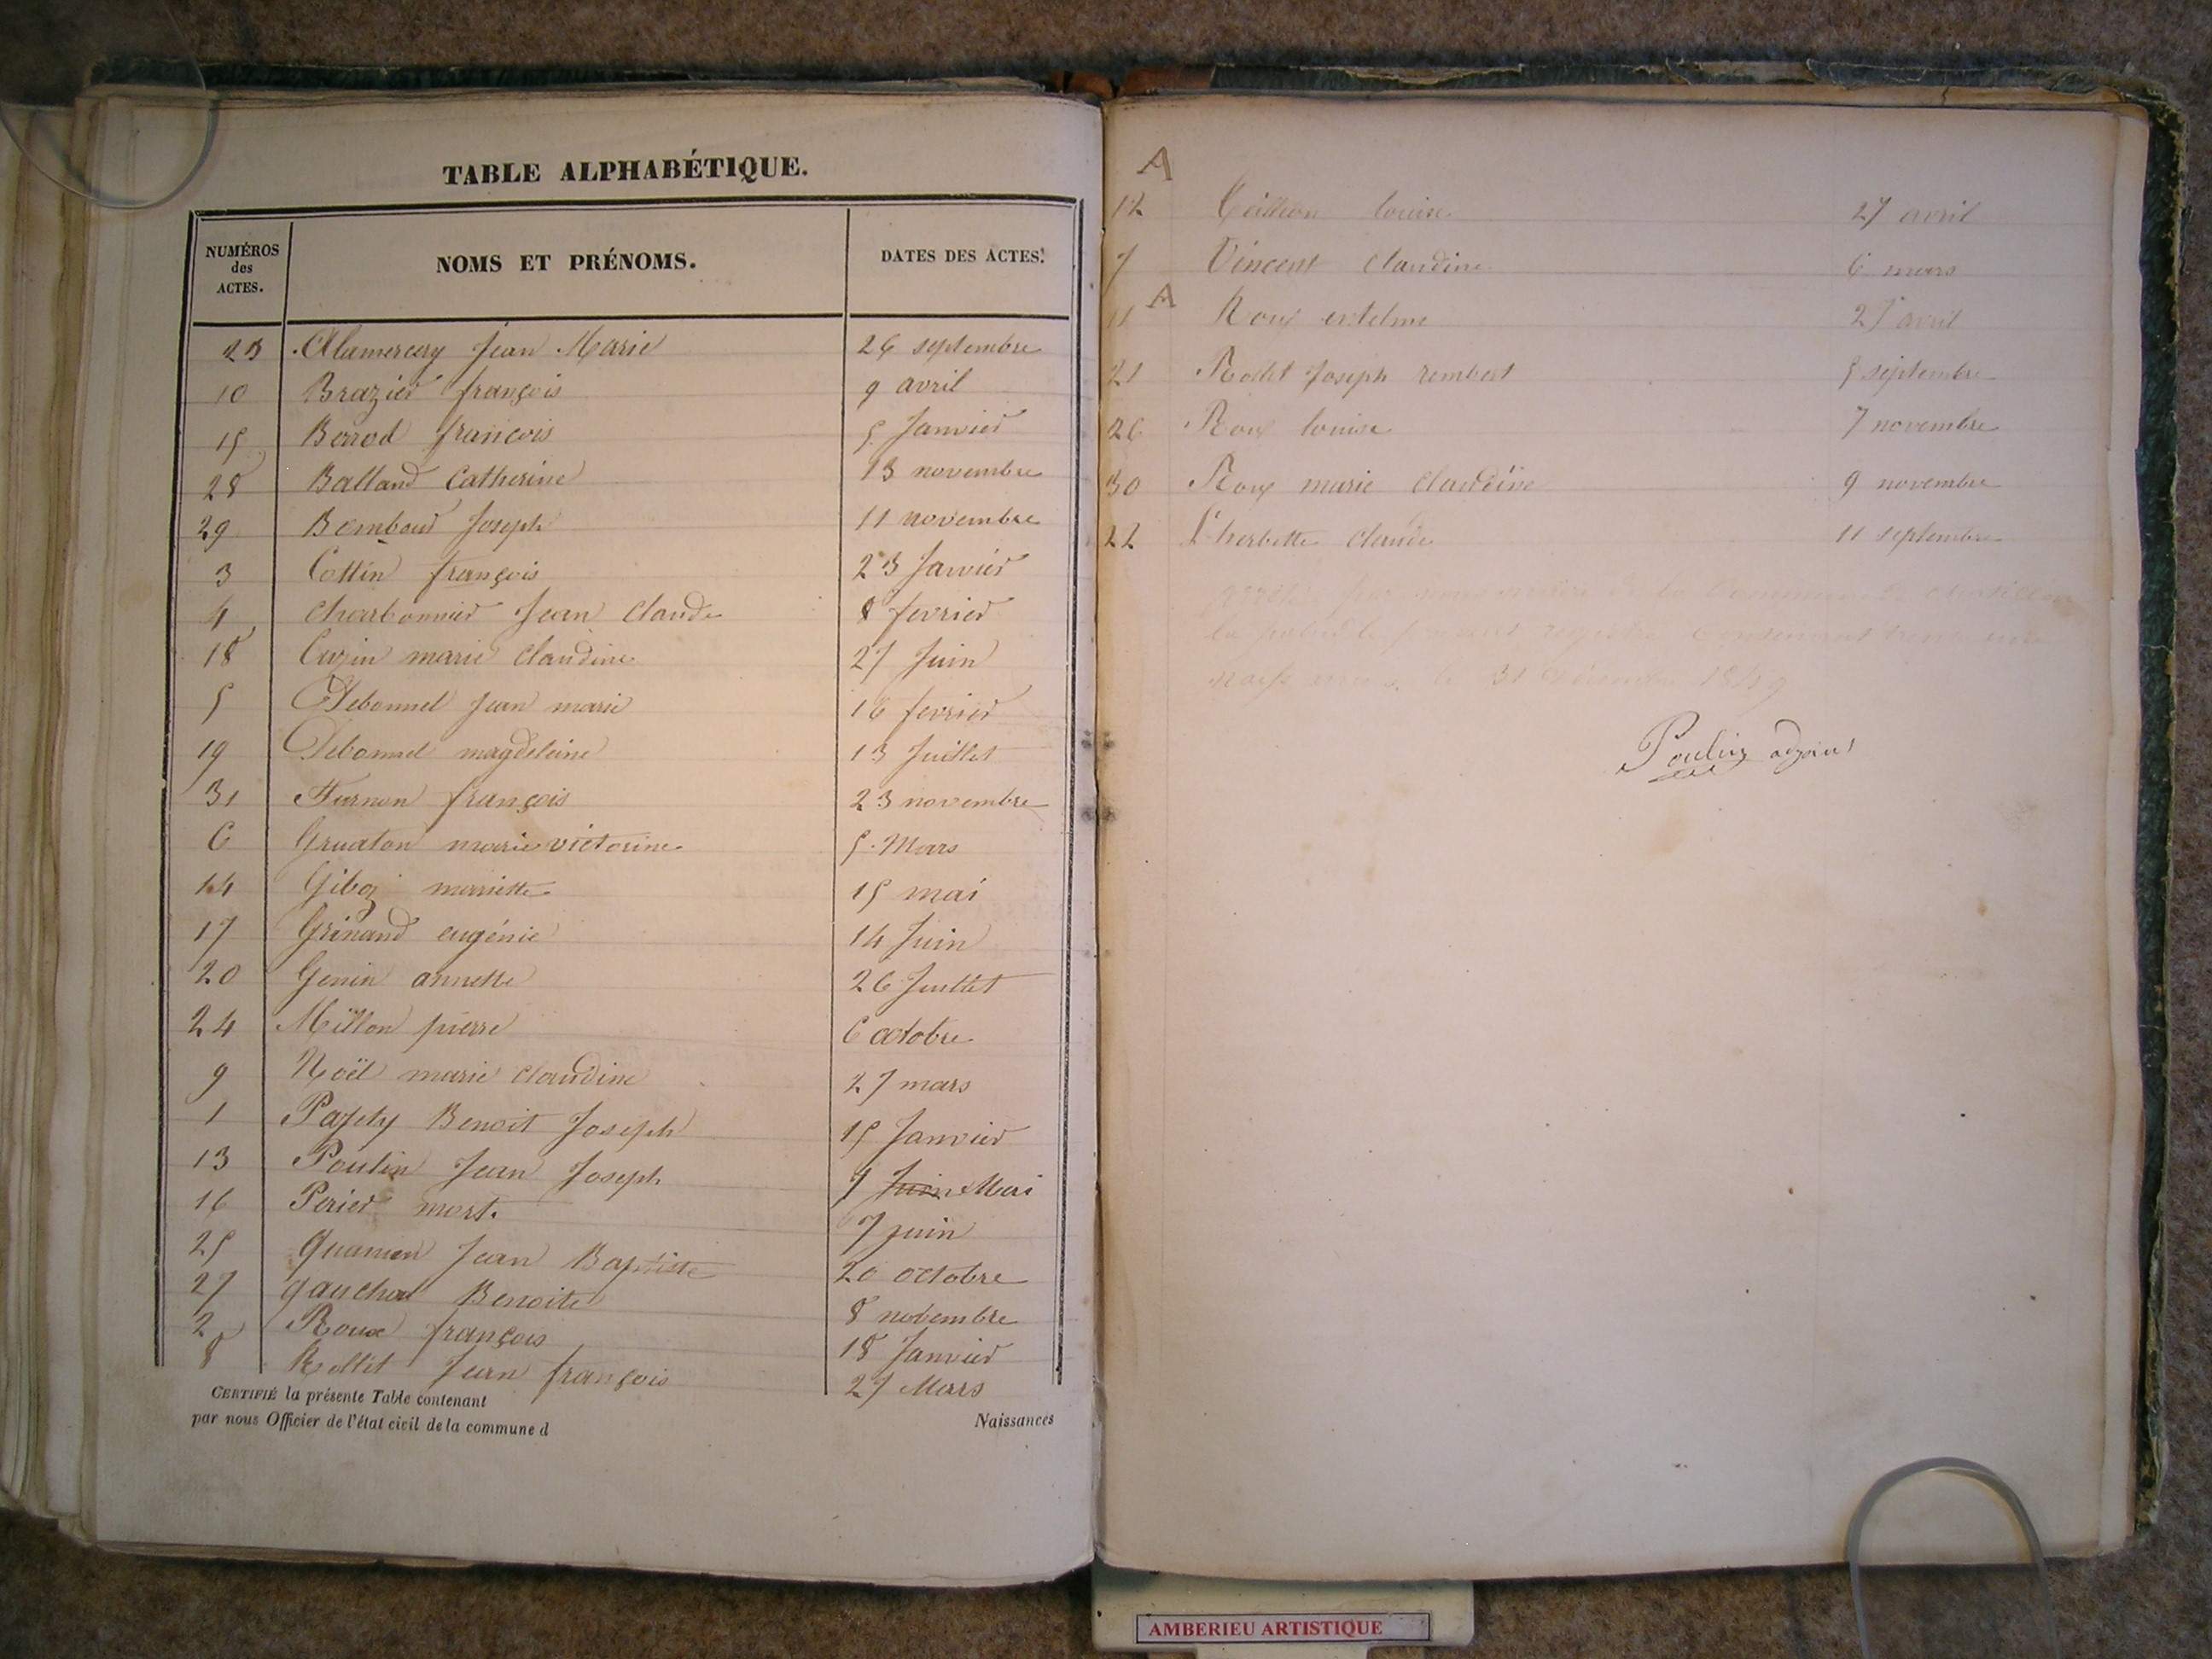 TABLE ALPHABÉTIQUE.
NUMÉROS des ACTES. NOMS ET PRÉNOMS. DATES DES ACTES.
23 Alamercery Jean Marie 26 septembre
10 Brazier françois 9 avril
15 Berrod francois 5 Janvier
28 Balland Catherine 13 novembre
29 Bemboud Joseph 11 novembre
3 Cottin françois 23 Janvier
4 Charbonnier Jean Claude 8 fevrier
18 Cuzin marie Claudine 27 Juin
5 Debonnel Jean marie 16 fevrier
19 Debonnel magdeleine 13 Juillet
31 Furnon françois 23 novembre
6 Gruaton marie victorine 5 Mars
14 Giboz mariette 15 mai
17 Grinand eugénie 14 Juin
20 Genin annette 26 Juillet
24 Millon pierre 6 octobre
9 Noël marie Claudine 27 mars
1 Benoit Joseph 15 Janvier
13 Poulin Jean Joseph 9 Juin Mai
16 Perier mort. 7 juin
25 Jean Baptiste 20 octobre
27 gauchon Benoite 8 novembre
2 Roux françois 18 Janvier
8 Rollet Jean françois 27 Mars
CERTIFIÉ la présente Table contenant Naissances
par nous Officier de l'état civil de la commune d
A
12 louise 27 avril
7 Vincent Claudine 6 mars
A
11 Roux entelme 27 avril
21 Rollet Joseph rembert 5 septembre
26 Roux louise 7 novembre
30 Roux marie Claudine 9 novembre
22 L'herbette Claude 11 septembre
par nous maire de la Commune de
la présent registre Contenant trente une
le 31 décembre 1849
Poulin adjoint
AMBERIEU ARTISTIQUE